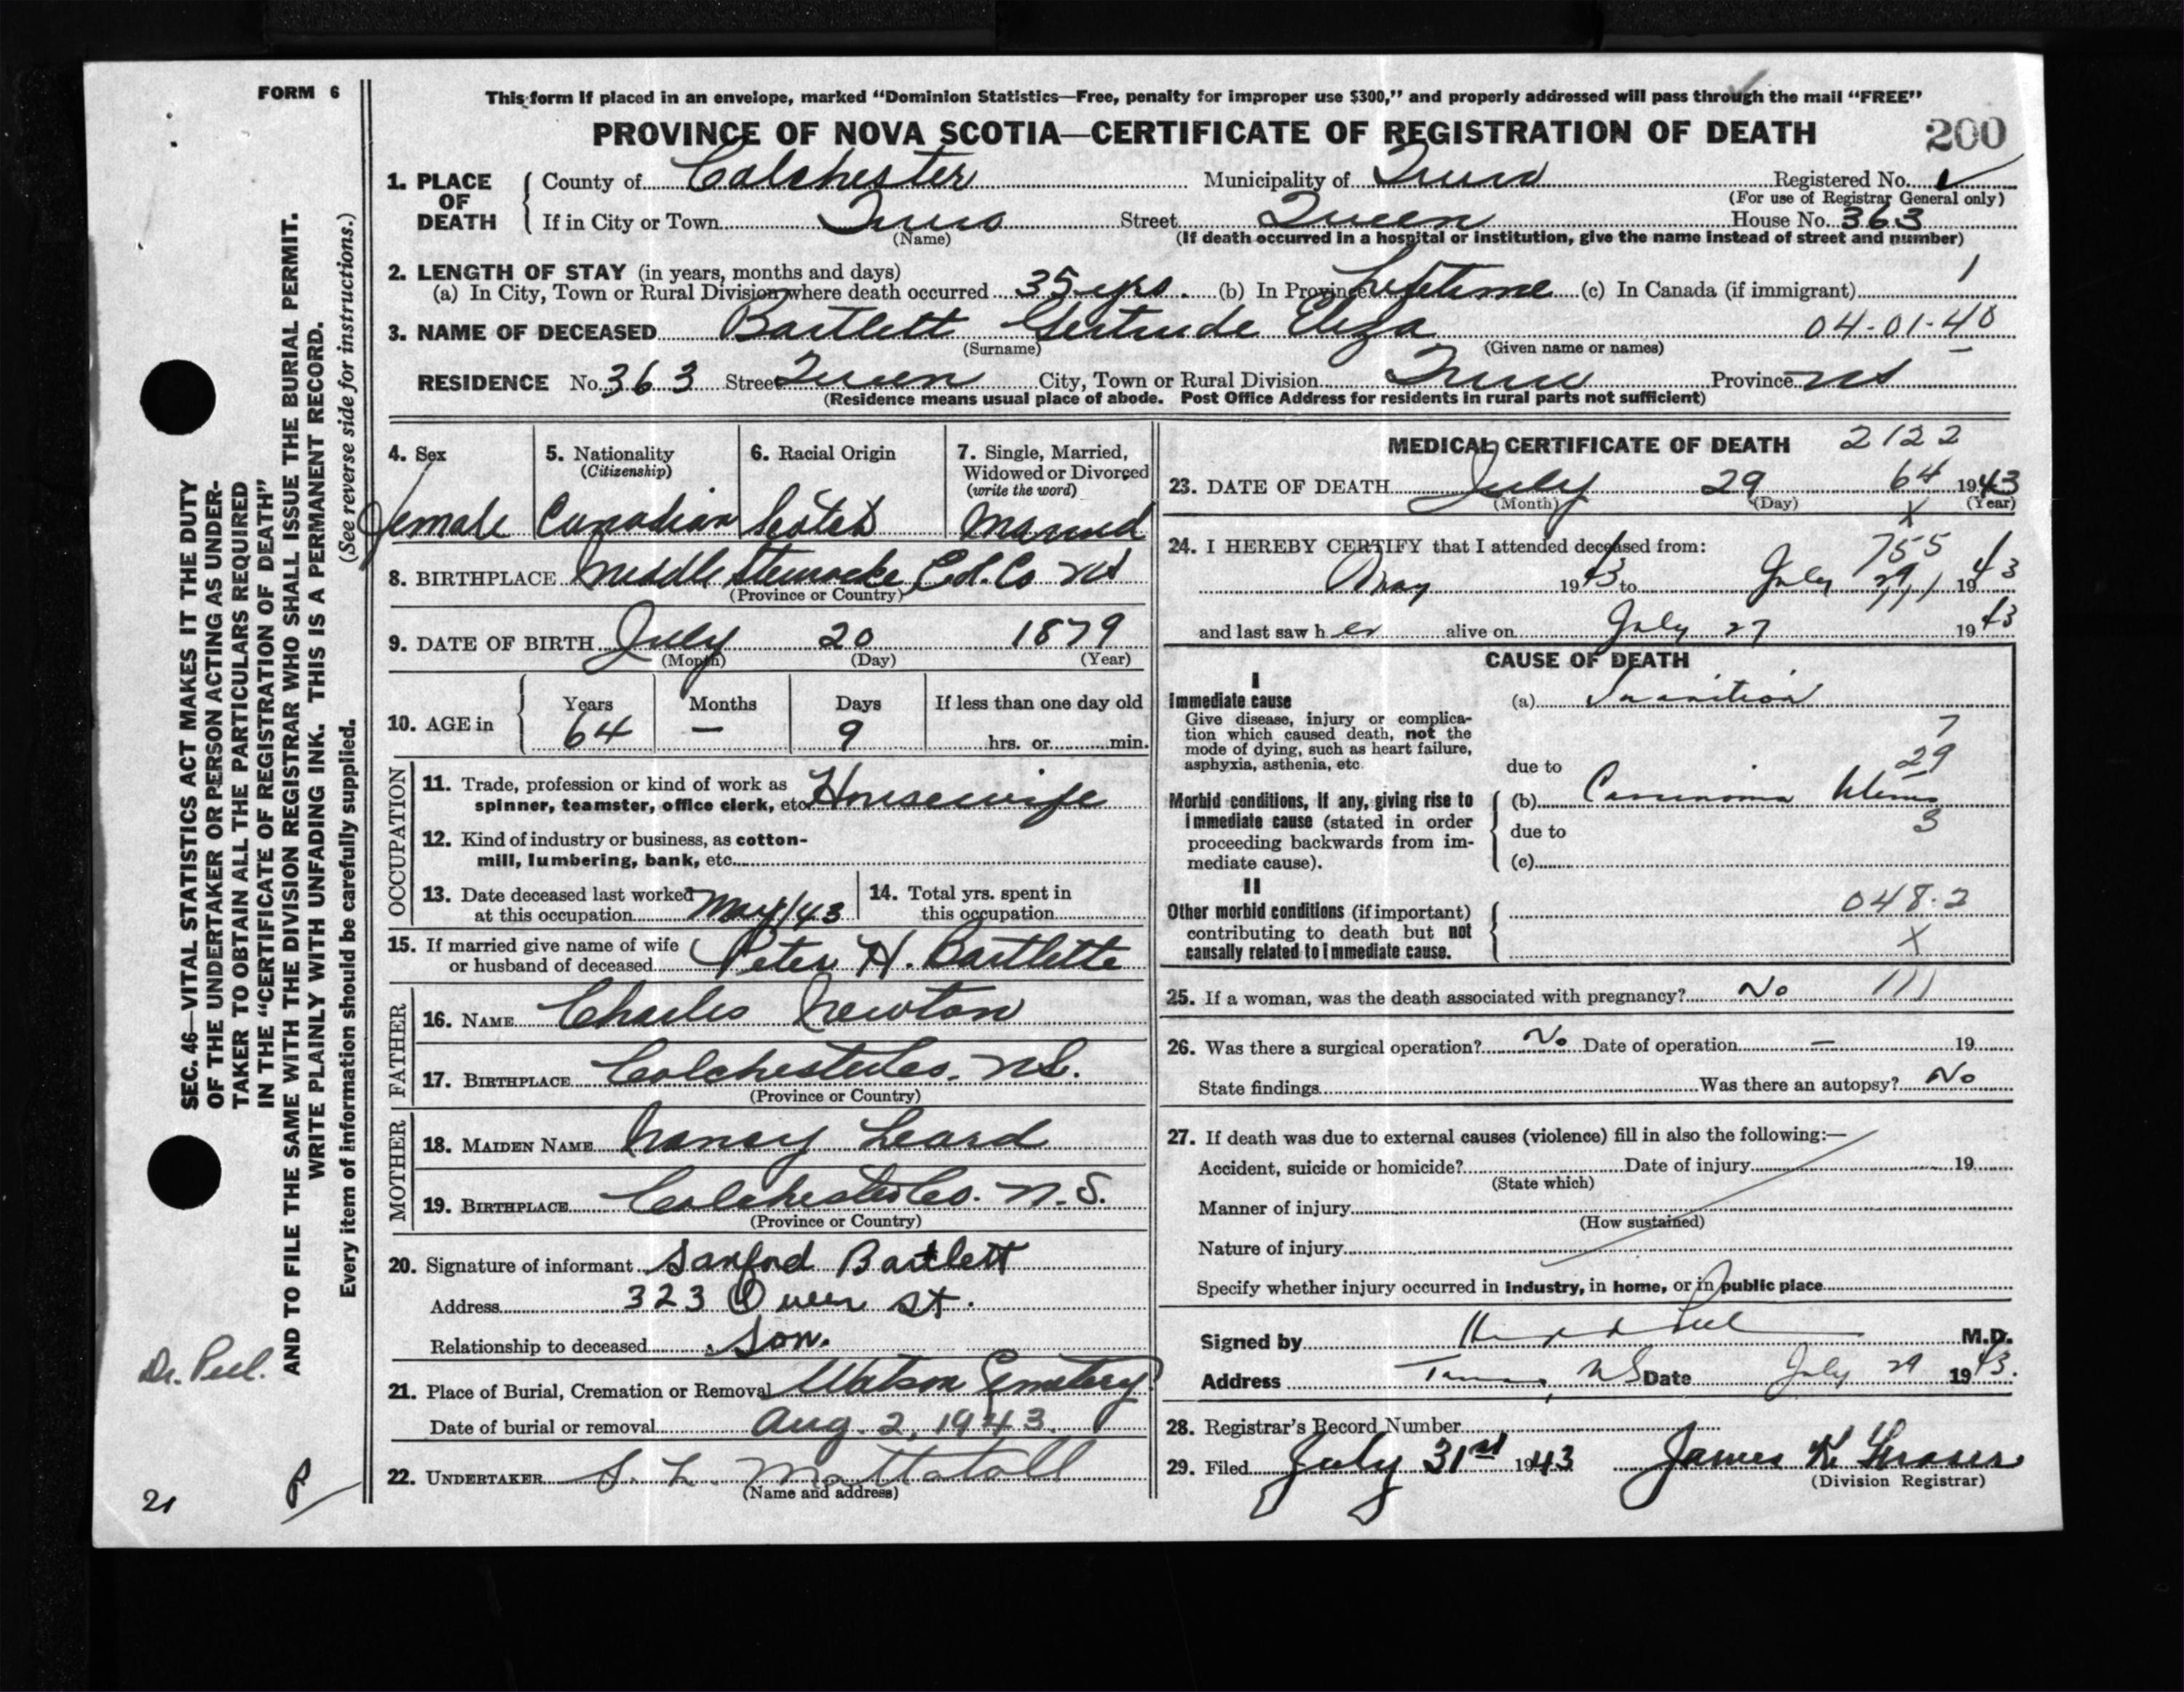 FORM 6
This form if placed in an envelope, marked "Dominion Statistics—Free, penalty for improper use $300," and properly addressed will pass through the mail "FREE"
PROVINCE OF NOVA SCOTIA—CERTIFICATE OF REGISTRATION OF DEATH 200
1. PLACE OF DEATH
County of Colchester Municipality of Truro Registered No.
(For use of Registrar General only)
If in City or Town Truro Street Queen House No. 363
(Name) (If death occurred in a hospital or institution, give the name instead of street and number)
2. LENGTH OF STAY (in years, months and days) 1
(a) In City, Town or Rural Division where death occurred 35 yrs. (b) In Province Lifetime (c) In Canada (if immigrant)
3. NAME OF DECEASED Bartlett Gertrude Eliza 04-01-40
(Surname) (Given name or names)
RESIDENCE No. 363 Street Queen City, Town or Rural Division Truro Province NS
(Residence means usual place of abode. Post Office Address for residents in rural parts not sufficient)
4. Sex
Female
5. Nationality
(Citizenship)
Canadian
6. Racial Origin
Scotch
7. Single, Married,
Widowed or Divorced
(write the word)
Married
8. BIRTHPLACE Middle Stewiacke Col. Co NS
(Province or Country)
9. DATE OF BIRTH July 20 1879
(Month) (Day) (Year)
10. AGE in
Years Months Days If less than one day old
64 — 9 hrs. or min.
OCCUPATION
11. Trade, profession or kind of work as
spinner, teamster, office clerk, etc. Housewife
12. Kind of industry or business, as cotton-
mill, lumbering, bank, etc.
13. Date deceased last worked
at this occupation May/43
14. Total yrs. spent in
this occupation
15. If married give name of wife
or husband of deceased Peter H. Bartlette
FATHER
16. NAME Charles Newton
17. BIRTHPLACE Colchester Co. N.S.
(Province or Country)
MOTHER
18. MAIDEN NAME Nancy Leard
19. BIRTHPLACE Colchester Co. N.S.
(Province or Country)
20. Signature of informant Sanford Bartlett
Address 323 Queen St.
Relationship to deceased Son.
21. Place of Burial, Cremation or Removal Watson Cemetery
Date of burial or removal Aug. 2, 1943.
22. UNDERTAKER S. L. Mattatall
(Name and address)
MEDICAL CERTIFICATE OF DEATH 2122
23. DATE OF DEATH July 29 64 1943
(Month) (Day) X (Year)
24. I HEREBY CERTIFY that I attended deceased from: 755
May 1943 to July 29 1943
111
and last saw her alive on July 27 1943
CAUSE OF DEATH
I
Immediate cause
Give disease, injury or complica-
tion which caused death, not the
mode of dying, such as heart failure,
asphyxia, asthenia, etc.
(a) Inanition
7
29
due to
Morbid conditions, if any, giving rise to
immediate cause (stated in order
proceeding backwards from im-
mediate cause).
(b) Carcinoma Uterus
3
due to
(c)
II
Other morbid conditions (if important)
contributing to death but not
causally related to immediate cause.
048.2
X
25. If a woman, was the death associated with pregnancy? No 111
26. Was there a surgical operation? No Date of operation — 19
State findings Was there an autopsy? No
27. If death was due to external causes (violence) fill in also the following:—
Accident, suicide or homicide? Date of injury 19
(State which)
Manner of injury
(How sustained)
Nature of injury
Specify whether injury occurred in industry, in home, or in public place
Signed by Peel M.D.
Address Truro, NS Date July 29 1943.
28. Registrar's Record Number
29. Filed July 31st 1943 James K. Fraser
(Division Registrar)
SEC. 46—VITAL STATISTICS ACT MAKES IT THE DUTY
OF THE UNDERTAKER OR PERSON ACTING AS UNDER-
TAKER TO OBTAIN ALL THE PARTICULARS REQUIRED
IN THE "CERTIFICATE OF REGISTRATION OF DEATH"
AND TO FILE THE SAME WITH THE DIVISION REGISTRAR WHO SHALL ISSUE THE BURIAL PERMIT.
WRITE PLAINLY WITH UNFADING INK. THIS IS A PERMANENT RECORD.
Every item of information should be carefully supplied. (See reverse side for instructions.)
Dr. Peel.
21